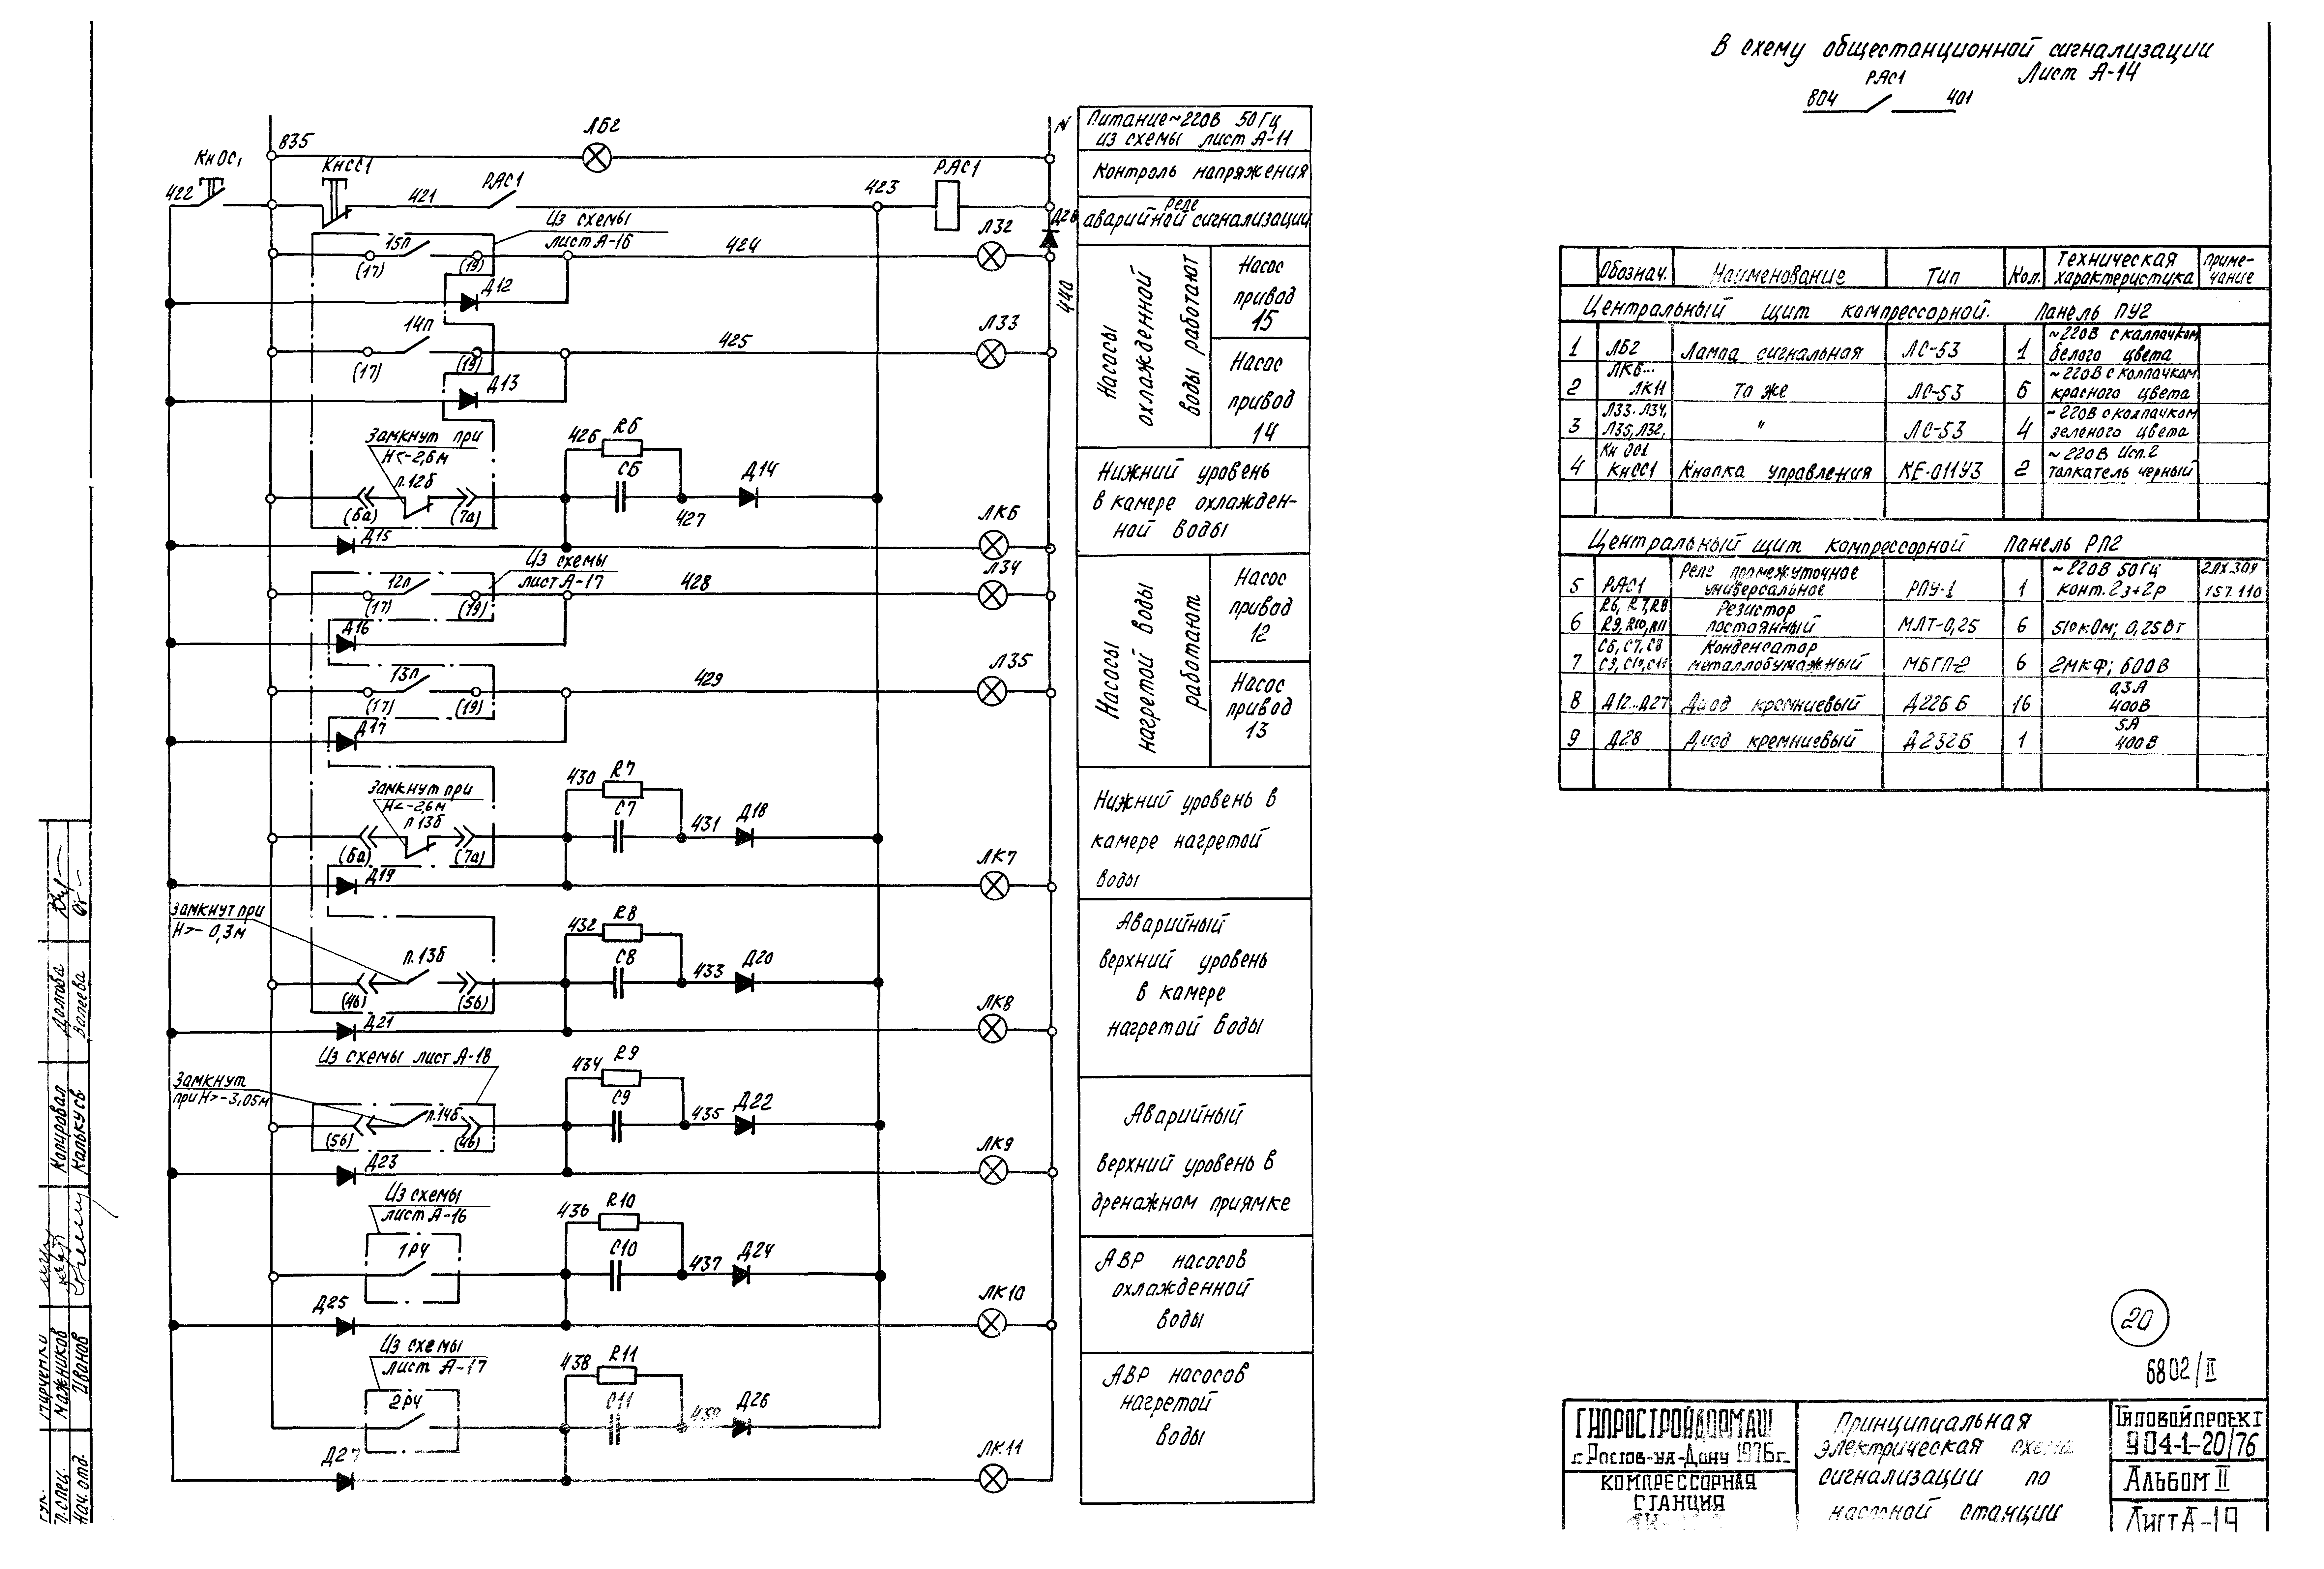 В схему общестанционной сигнализации
Лист А-14
РАС1
804 401
835
ЛБ2
N
КнОС1
КнСС1
422
421
РАС1
423
РАС1
Д28
440
Из схемы
лист А-16
15п
(17)
(19)
424
Л32
Д12
14п
(17)
(19)
425
Л33
Д13
Замкнут при
Н<-2,6м
п.12б
(6а)
(7а)
426
R6
С6
427
Д14
Д15
ЛК6
Из схемы
лист А-17
12п
(17)
(19)
428
Л34
Д16
13п
(17)
(19)
429
Л35
Д17
Замкнут при
Н<-2,6м
п.13б
(6а)
(7а)
430
R7
С7
431
Д18
Д19
ЛК7
Замкнут при
Н>-0,3м
п.13б
(4б)
(5б)
432
R8
С8
433
Д20
Д21
ЛК8
Из схемы лист А-18
Замкнут
при Н>-3,05м
п.14б
(5б)
(4б)
434
R9
С9
435
Д22
Д23
ЛК9
Из схемы
лист А-16
1РЧ
436
R10
С10
437
Д24
Д25
ЛК10
Из схемы
лист А-17
2РЧ
438
R11
С11
439
Д26
Д27
ЛК11
Питание ~220В 50Гц
из схемы лист А-11
Контроль напряжения
Реле
аварийной сигнализации
Насосы
охлажденной
воды работают
Насос
привод
15
Насос
привод
14
Нижний уровень
в камере охлажден-
ной воды
Насосы
нагретой воды
работают
Насос
привод
12
Насос
привод
13
Нижний уровень в
камере нагретой
воды
Аварийный
верхний уровень
в камере
нагретой воды
Аварийный
верхний уровень в
дренажном приямке
АВР насосов
охлажденной
воды
АВР насосов
нагретой
воды
Обознач. Наименование Тип Кол. Техническая характеристика Приме-чание
Центральный щит компрессорной. Панель ПУ2
1 ЛБ2 Лампа сигнальная ЛС-53 1 ~220В с калпачком белого цвета
2 ЛК6... ЛК11 То же ЛС-53 6 ~220В с колпачком красного цвета
3 Л33. Л34, Л35, Л32, " ЛС-53 4 ~220В с колпачком зеленого цвета
4 КнОС1 КнСС1 Кнопка управления КЕ-011У3 2 ~220В Исп.2 толкатель черный
Центральный щит компрессорной Панель РП2
5 РАС1 Реле промежуточное универсальное РПУ-1 1 ~220В 50Гц конт. 2з+2р 2ЛХ.309 157.110
6 R6, R7, R8 R9, R10, R11 Резистор постоянный МЛТ-0,25 6 510кОм; 0,25Вт
7 С6, С7, С8 С9, С10, С11 Конденсатор металлобумажный МБГП-2 6 2МКФ; 600В
8 Д12...Д27 Диод кремниевый Д226Б 16 0,3А 400В
9 Д28 Диод кремниевый Д232Б 1 5А 400В
20
6802/II
ГИПРОСТРОЙДОРМАШ
г. Ростов-на-Дону 1976г.
КОМПРЕССОРНАЯ
СТАНЦИЯ
Принципиальная
электрическая схема
сигнализации по
насосной станции
Типовой проект
904-1-20/76
Альбом II
Лист А-19
Гл. спец. Мажников
Нач. отд. Иванов
Копировал Долгова
Калькусв Валеева